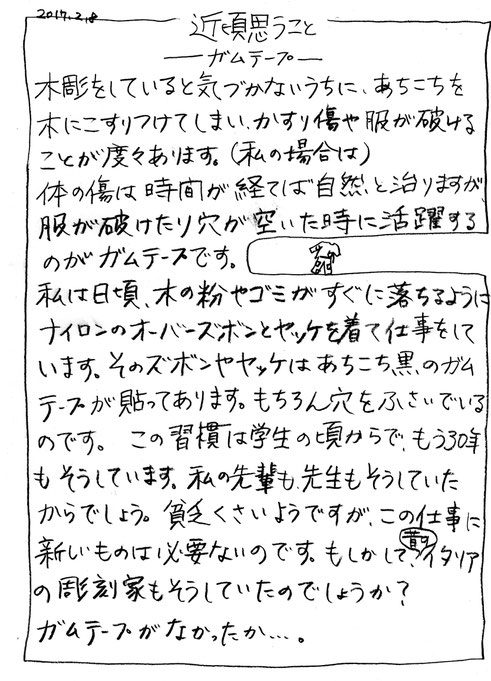 2017.2.8
近頃思うこと
―ガムテープ―
木彫をしていると気づかないうちに、あちこちを
木にこすりつけてしまい、かすり傷や服が破ける
ことが度々あります。(私の場合は)
体の傷は時間が経てば自然と治りますが
服が破けたり穴が空いた時に活躍する
のがガムテープです。
私は日頃、木の粉やゴミがすぐに落ちるように
ナイロンのオーバーズボンとヤッケを着て仕事をして
います。そのズボンやヤッケはあちこち黒のガム
テープが貼ってあります。もちろん穴をふさいでいる
のです。 この習慣は学生の頃からで、もう30年
もそうしています。私の先輩も、先生もそうしていた
からでしょう。貧乏くさいようですが、この仕事に
新しいものは必要ないのです。もしかして、昔のイタリア
の彫刻家もそうしていたのでしょうか?
ガムテープがなかったか…。